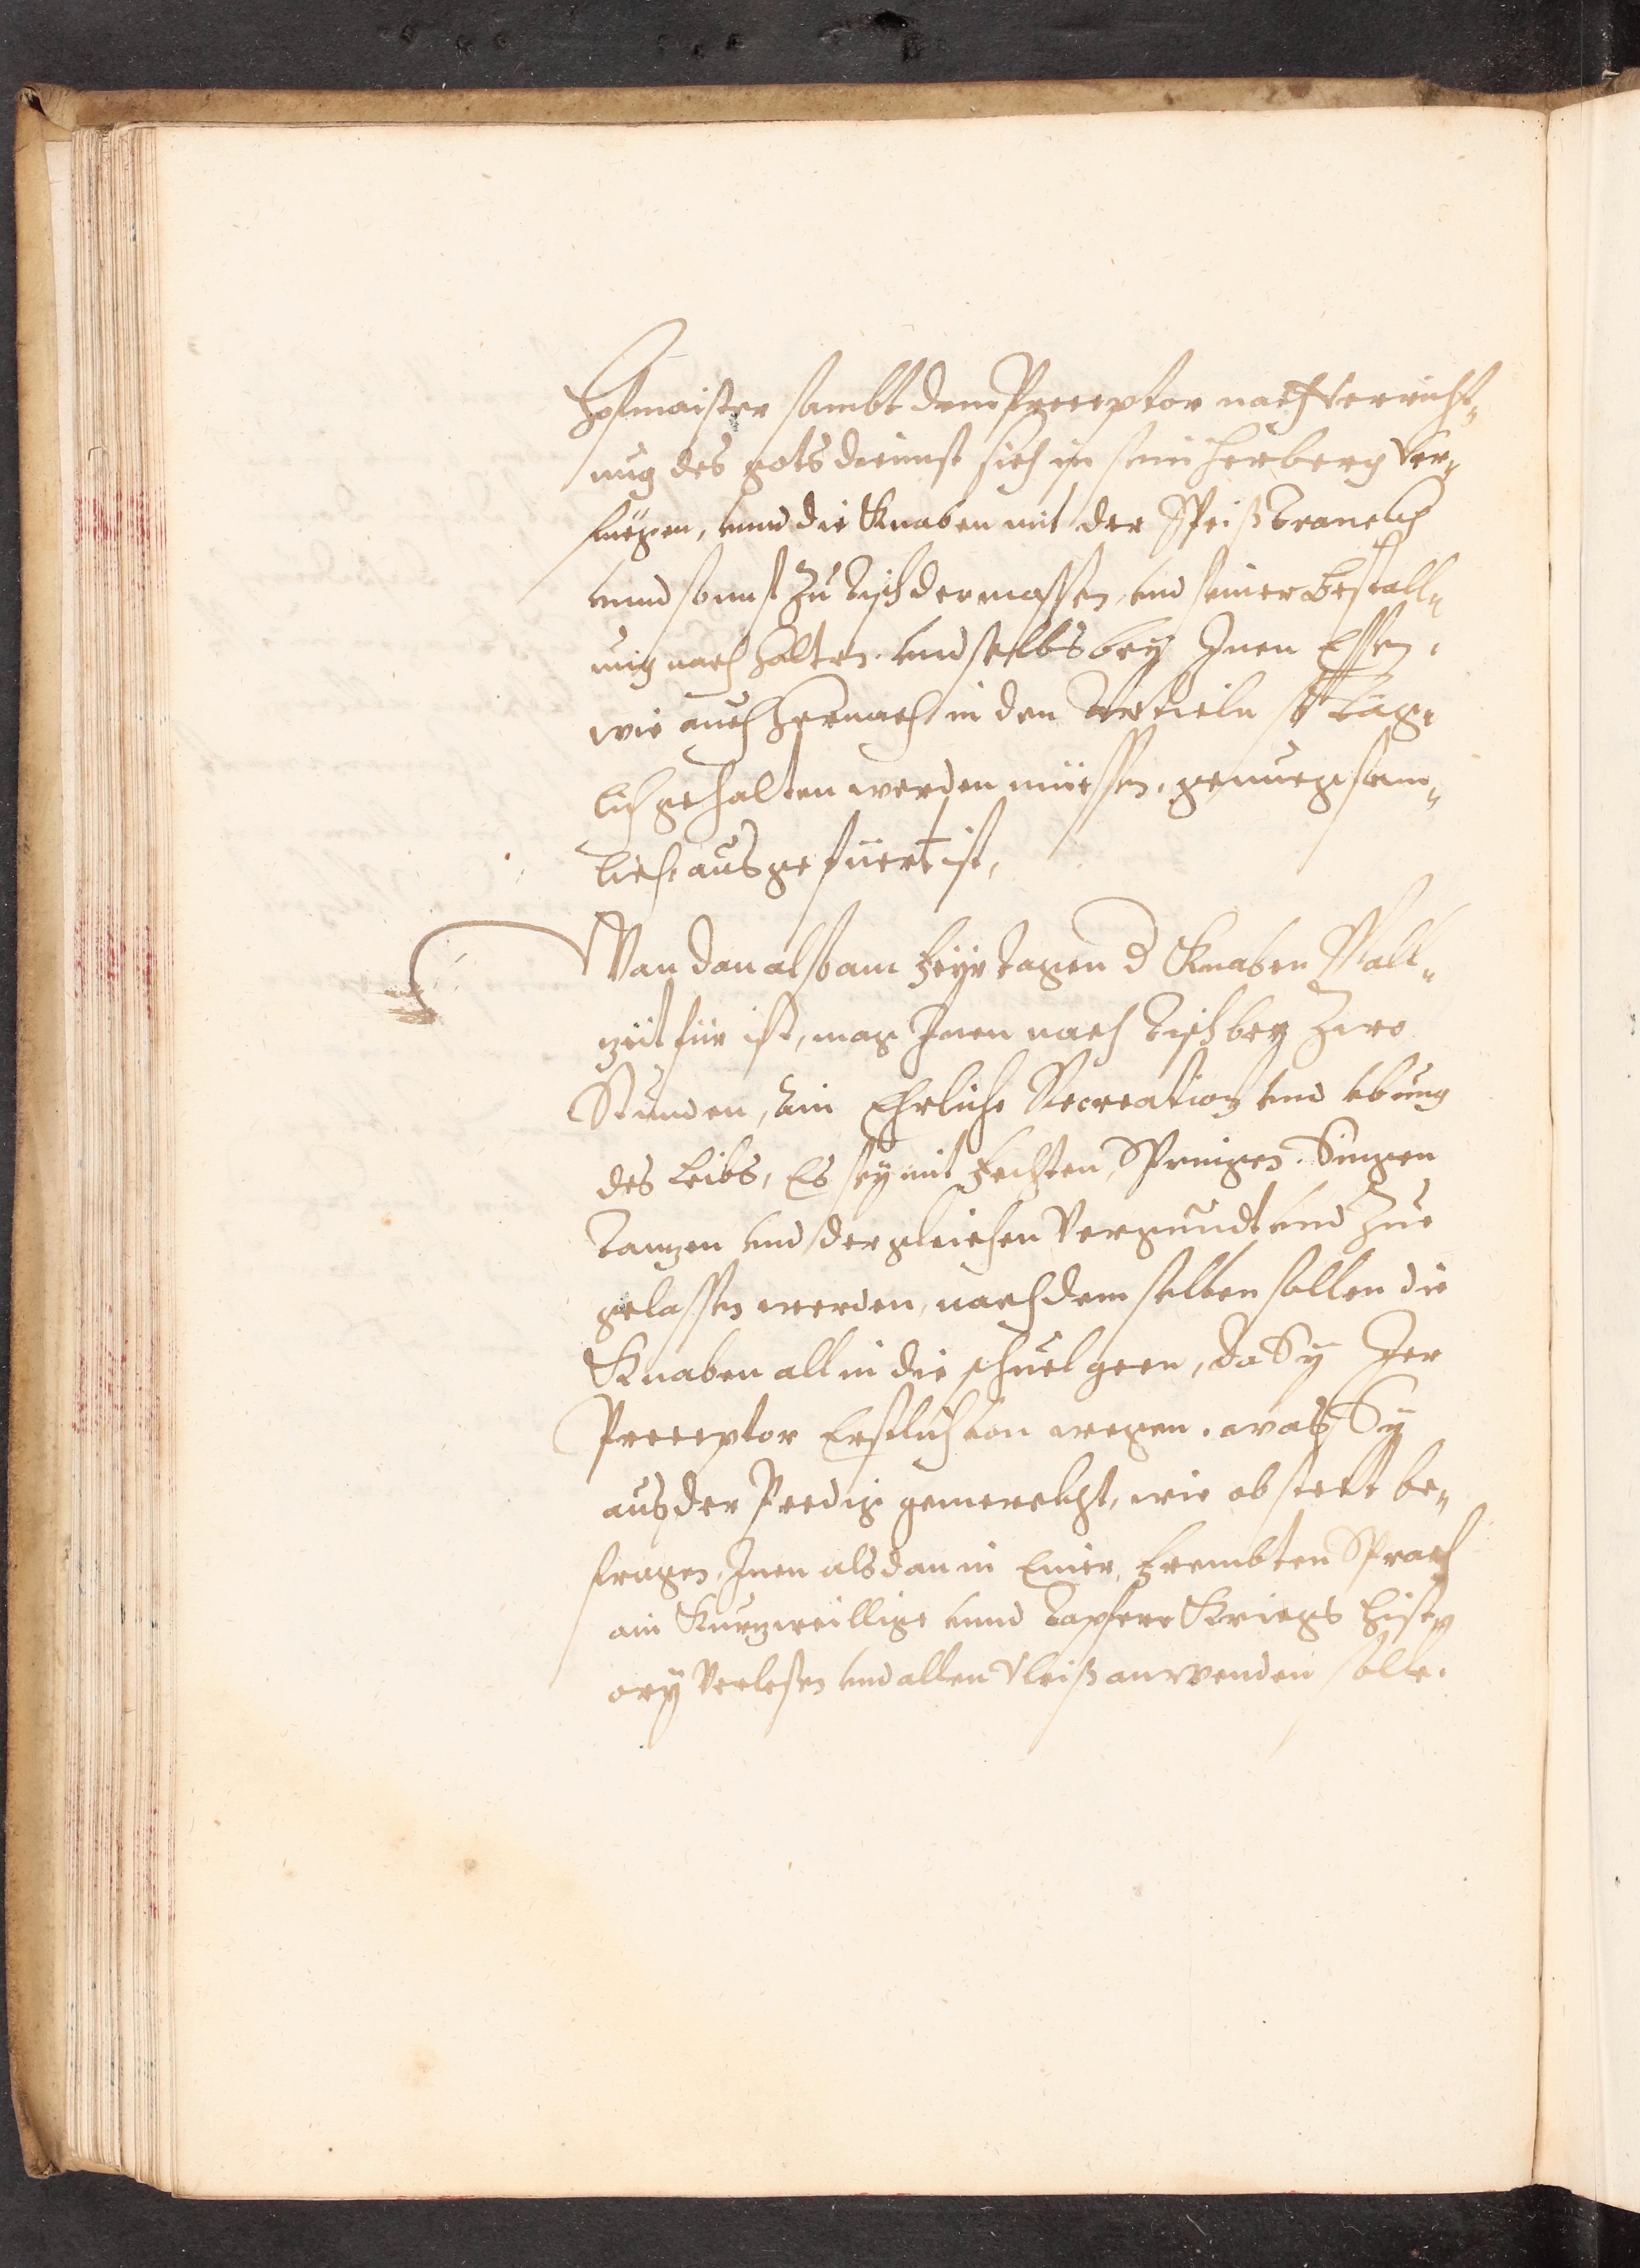 Hofmaister sambt dem Preceptor nach verricht„
ung des gots diennst sich in sein Herberg ver„
fuegen, unnd die Knaben mit der Speiß tranckh
unnd sonnst zu Tisch dermassen, und seiner Bestall„
ung nach halten. und selbs bey Inen Essen,
wie auch hernach in den Articln so täg„
lich gehalten werden müessen, genuegsam„
lich ausgefüert ist,
Wan dan also am Feyrtagen d Knaben Mall„
zeit für ist, mag Inen nach Tisch bey zwo
Stunden, ain Ehrliche Recreation und ubung
des Leibs, Es sey mit Fechten, Springen. Singen
Tanzen und dergleichen vergundt und zue
gelassen werden, nach dem selben sollen die
Knaben all in die schuel geen, da Sy Ier
Preceptor Erstlich von wegen. was Sy
aus der Predig gemerckht, wie ob steet be„
fragen, Inen alsdan in Einer frembten Sprach
ain Kurzweillige unnd Tapfere Kriegs Hist„
ory verlesen und allen vleiß anwenden solle.